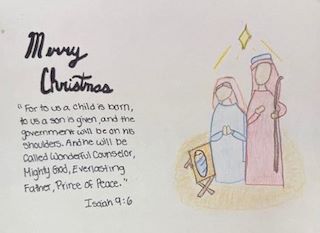 Merry
Christmas
"For to us a child is born,
to us a son is given, and the
government will be on his
shoulders. And he will be
Called Wonderful Counselor,
Mighty God, Everlasting
Father, Prince of Peace."
Isaiah 9:6